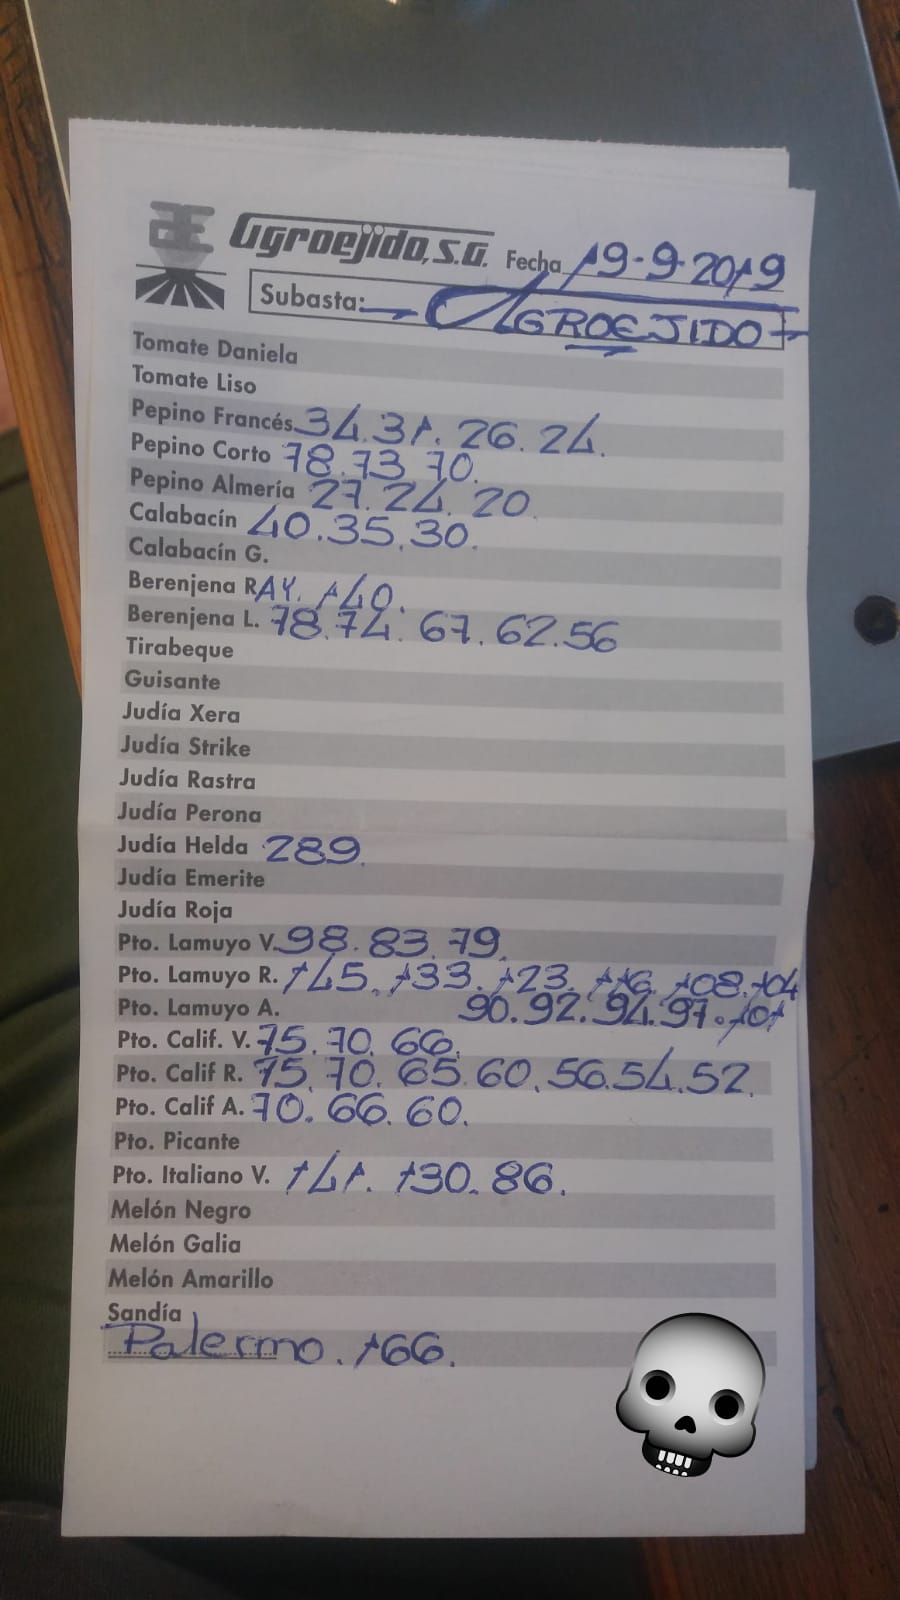 Agroejido, S.A. Fecha 19-9-2019
Subasta: AGROEJIDO
Tomate Daniela
Tomate Liso
Pepino Francés 34. 31. 26. 24.
Pepino Corto 78. 73. 70.
Pepino Almería 27. 24. 20.
Calabacín 40. 35. 30.
Calabacín G.
Berenjena RAY. 140.
Berenjena L. 78. 74. 67. 62. 56
Tirabeque
Guisante
Judía Xera
Judía Strike
Judía Rastra
Judía Perona
Judía Helda 289.
Judía Emerite
Judía Roja
Pto. Lamuyo V. 98. 83. 79.
Pto. Lamuyo R. 145. 133. 123. 116. 108. 104
Pto. Lamuyo A. 90. 92. 94. 97. 101
Pto. Calif. V. 75. 70. 66.
Pto. Calif R. 75. 70. 65. 60. 56. 54. 52.
Pto. Calif A. 70. 66. 60.
Pto. Picante
Pto. Italiano V. 141. 130. 86.
Melón Negro
Melón Galia
Melón Amarillo
Sandía
Palermo. 166.